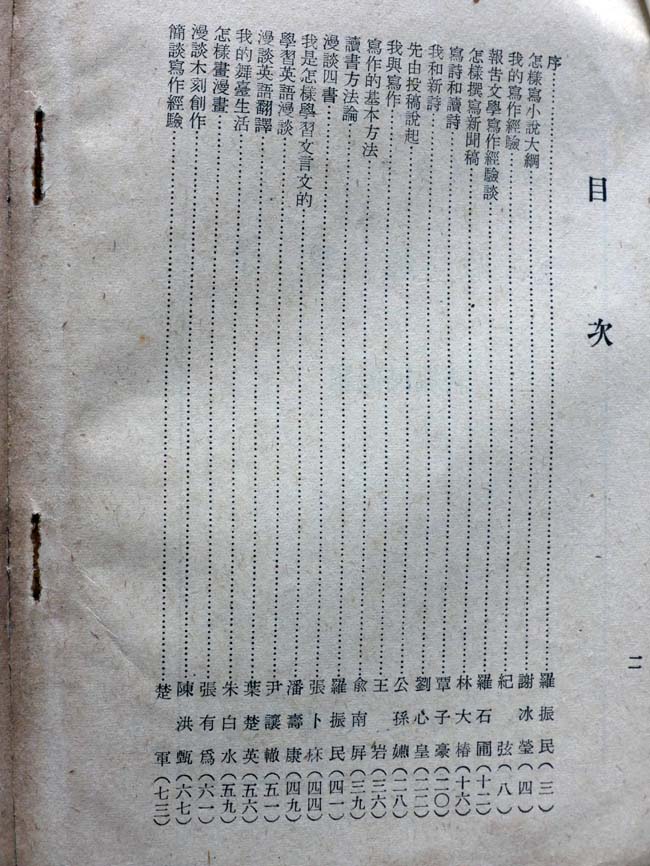 目次
序 羅振民（三）
怎樣寫小說大綱 謝冰瑩（四）
我的寫作經驗 紀弦（八）
報告文學寫作經驗談 羅石圃（十二）
怎樣撰寫新聞稿 林大椿（十六）
寫詩和讀詩 覃子豪（二〇）
我和新詩 劉心皇（二二）
先由投稿說起 公孫嬿（二八）
我與寫作 王岩（三六）
寫作的基本方法 俞南屏（三九）
讀書方法論 羅振民（四一）
漫談四書 張卜庥（四四）
我是怎樣學習文言文的 潘壽康（四九）
學習英語漫談 尹讓轍（五一）
漫談英語翻譯 葉楚英（五六）
我的舞臺生活 朱白水（五九）
怎樣畫漫畫 張有爲（六一）
漫談木刻創作 陳洪甄（六七）
簡談寫作經驗 楚軍（七三）
二